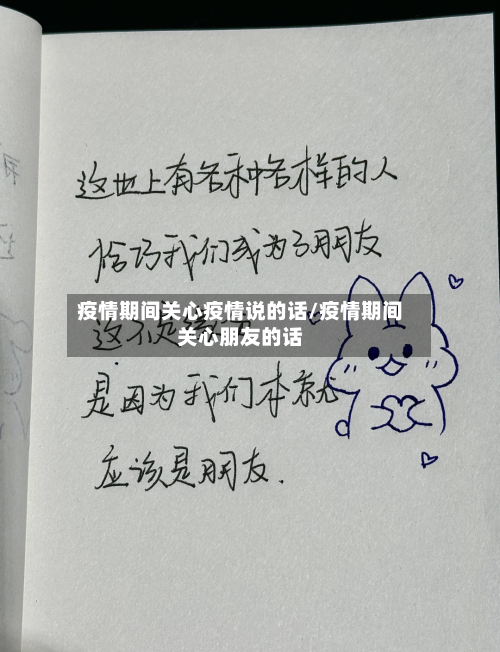 这世上有各种各样的人
恰巧我们成为了朋友
疫情期间关心疫情说的话/疫情期间
关心朋友的话
这不是
是因为我们本就
应该是朋友.